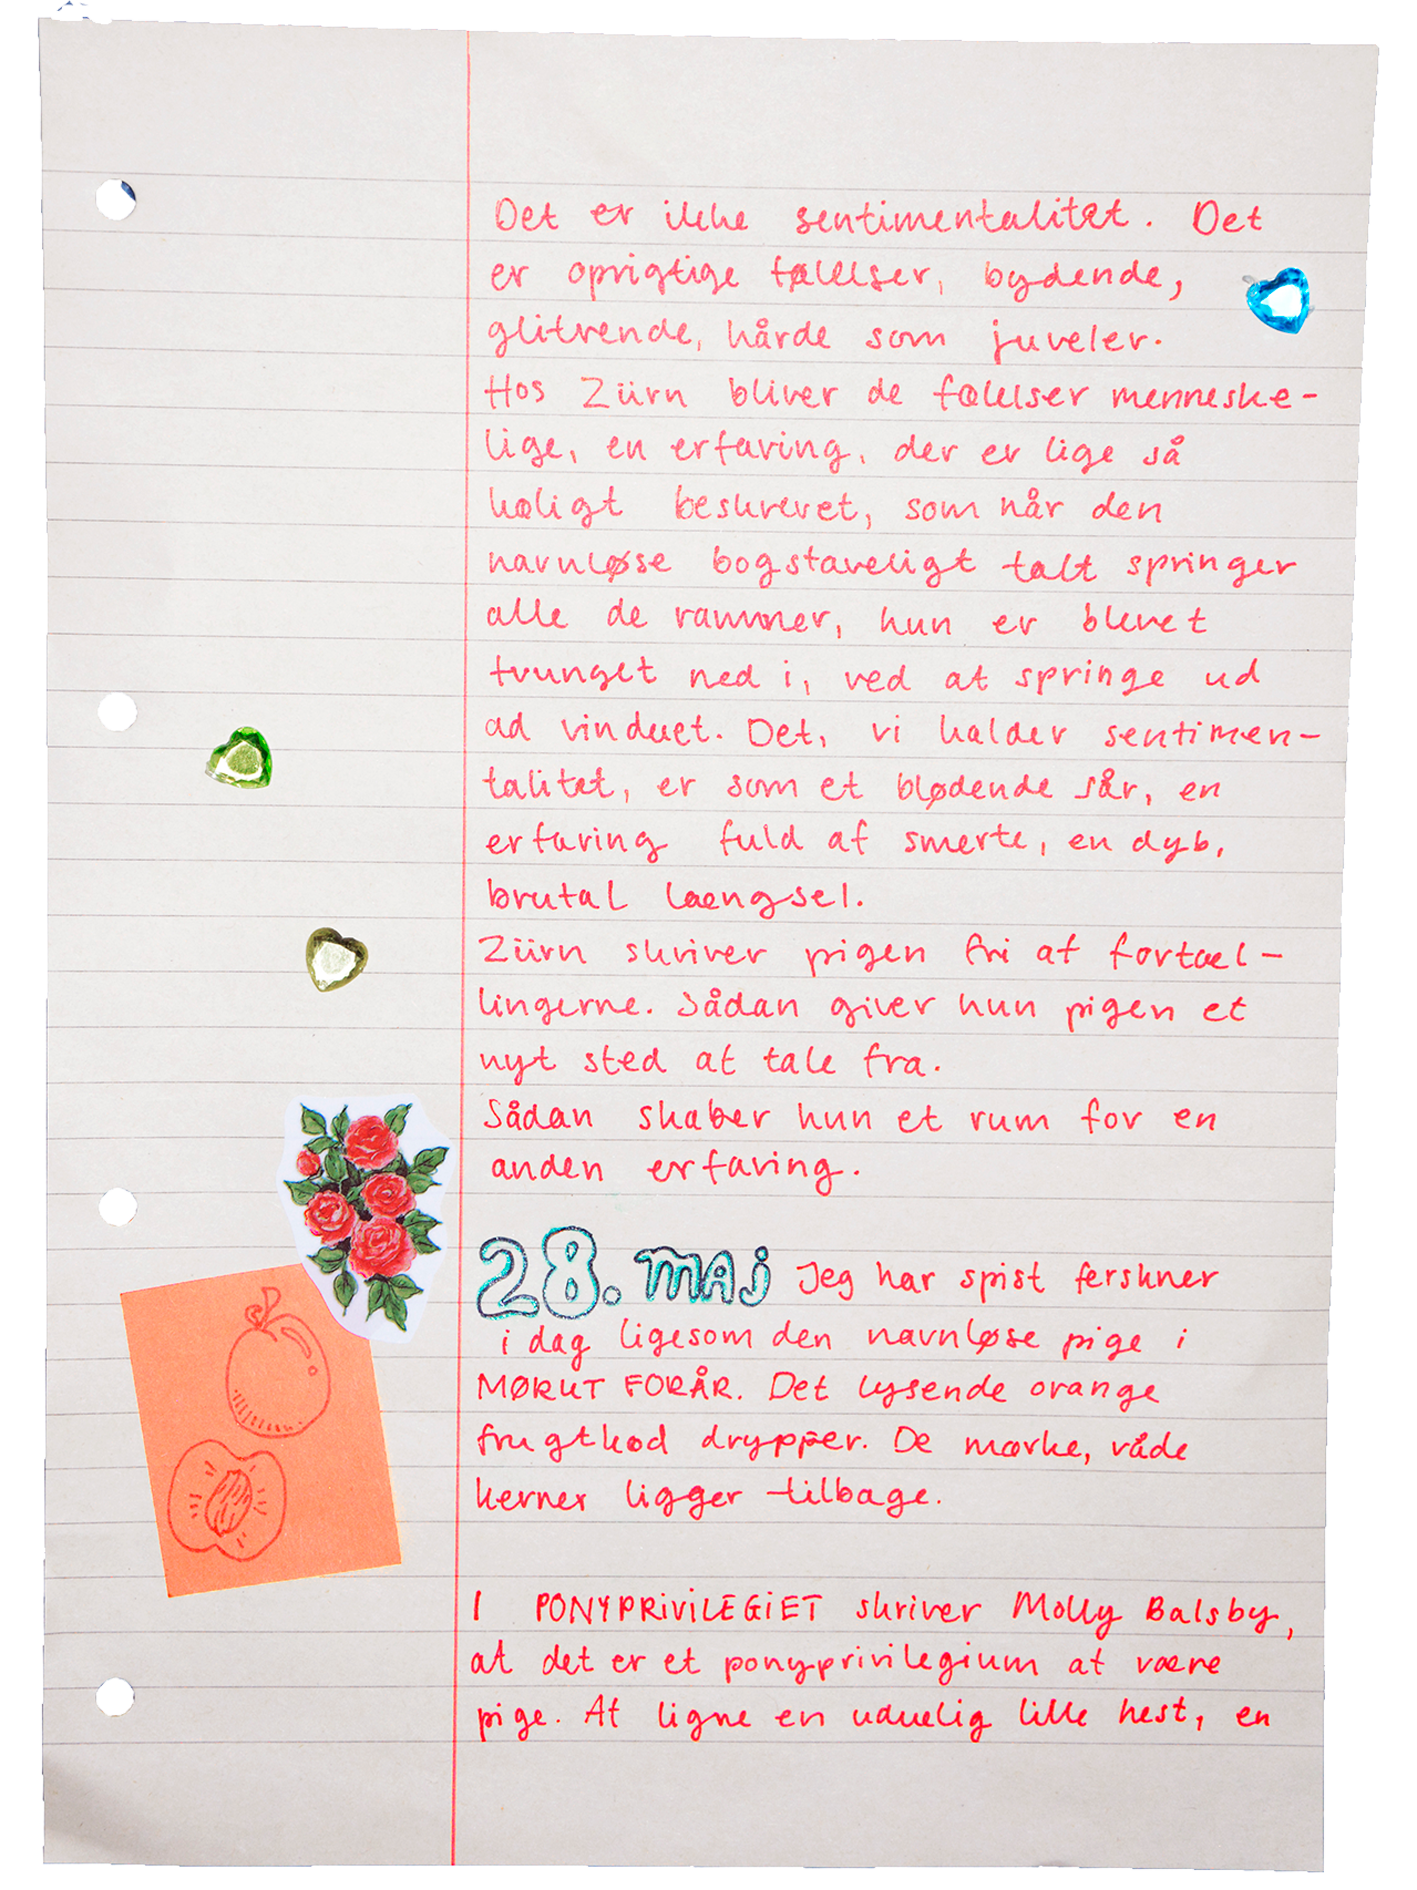 Det er ikke sentimentalitet. Det
er oprigtige følelser, bydende,
glitrende, hårde som juveler.
Hos Zürn bliver de følelser menneske-
lige, en erfaring, der er lige så
køligt beskrevet, som når den
navnløse bogstaveligt talt springer
alle de rammer, hun er blevet
tvunget ned i, ved at springe ud
ad vinduet. Det, vi kalder sentimen-
talitet, er som et blødende sår, en
erfaring fuld af smerte, en dyb,
brutal længsel.
Zürn skriver pigen fri af fortæl-
lingerne. Sådan giver hun pigen et
nyt sted at tale fra.
Sådan skaber hun et rum for en
anden erfaring.
28. MAJ Jeg har spist ferskner
i dag ligesom den navnløse pige i
MØRKT FORÅR. Det lysende orange
frugtkød drypper. De mørke, våde
kerner ligger tilbage.
I PONYPRIVILEGIET skriver Molly Balsby,
at det er et ponyprivilegium at være
pige. At ligne en uduelig lille hest, en